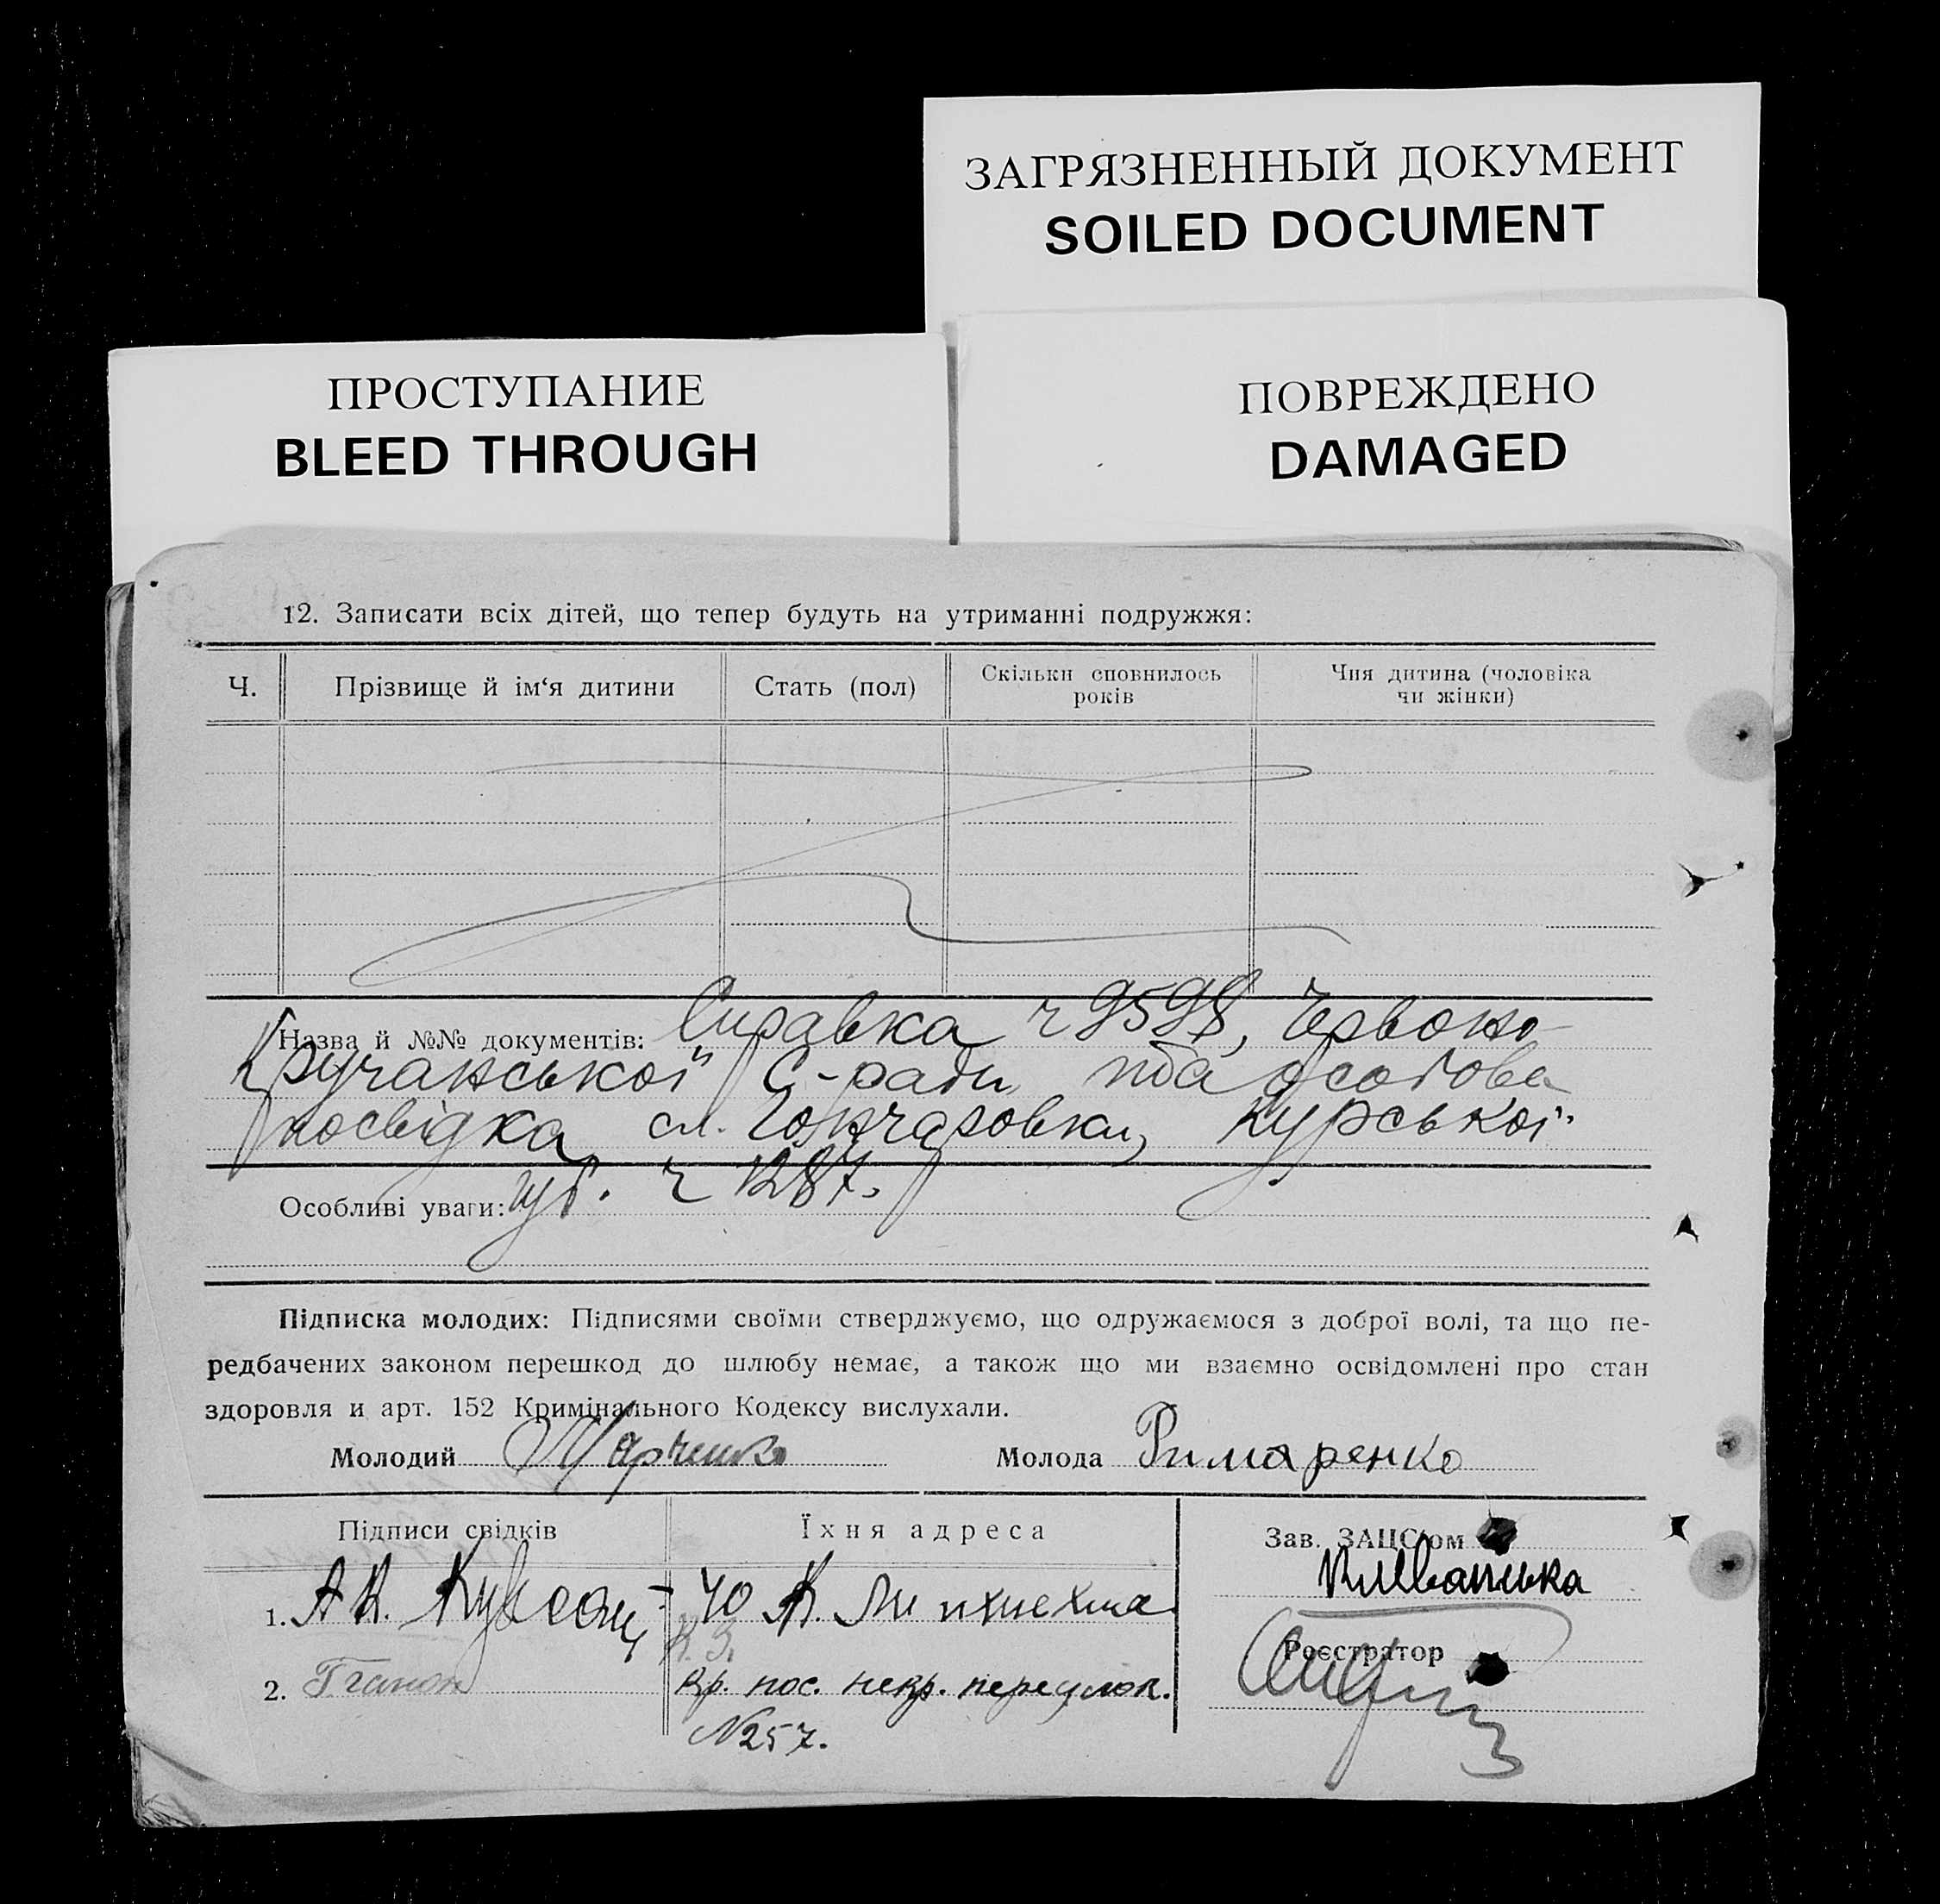 ЗАГРЯЗНЕННЫЙ ДОКУМЕНТ
SOILED DOCUMENT
ПРОСТУПАНИЕ
BLEED THROUGH
ПОВРЕЖДЕНО
DAMAGED
12. Записати всіх дітей, що тепер будуть на утриманні подружжя:
Ч. Прізвище й ім‘я дитини Стать (пол) Скільки сповнилось років Чия дитина (чоловіка чи жінки)
Назва й №№ документів: Справка ч 9598, Червоно-
Кручанської С-ради, та особова
посвідка сл. Гончаровки, Курської
Особливі уваги: губ. ч 1287.
Підписка молодих: Підписями своїми стверджуємо, що одружаємося з доброї волі, та що пе-
редбачених законом перешкод до шлюбу немає, а також що ми взаємно освідомлені про стан
здоровля и арт. 152 Кримінального Кодексу вислухали.
Молодий Марченко Молода Римаренко
Підписи свідків Їхня адреса Зав. ЗАЦС'ом
1. А К. 40 К.
Реєстратор
2. кр. пос. некр. переулок.
N 257.